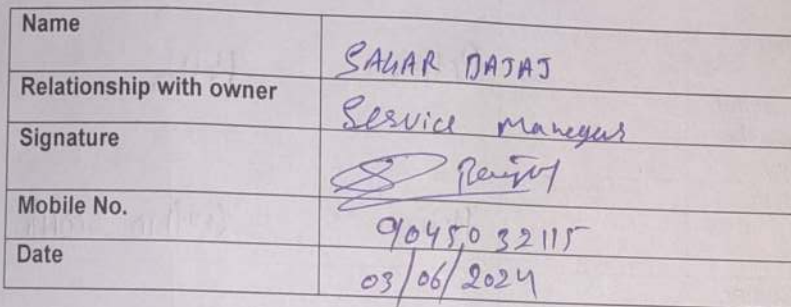 Name SAGAR BAJAJ
Relationship with owner Service Maneger
Signature
Mobile No. 9045032115
Date 03/06/2024